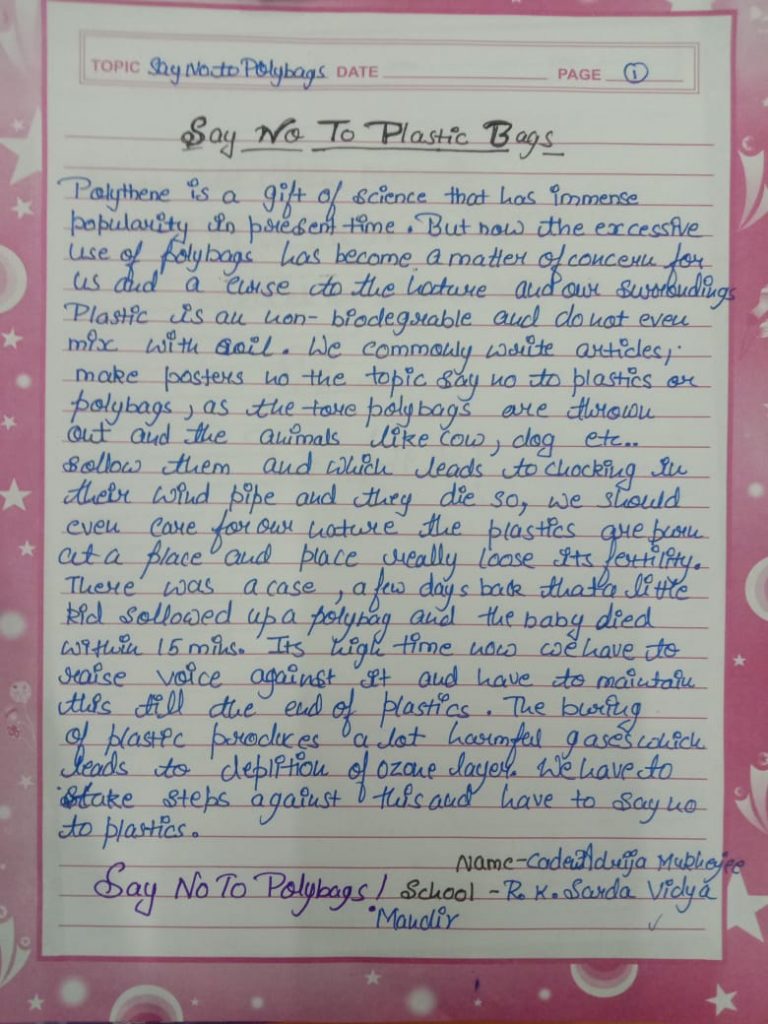 TOPIC Say No to Polybags DATE PAGE 1
Say No To Plastic Bags
Polythene is a gift of science that has immense
popularity in present time. But now the excessive
use of polybags has become a matter of concern for
us and a curse to the nature and our surroundings
Plastic is an non-biodegrable and do not even
mix with soil. We commonly write articles,
make posters no the topic say no to plastics or
polybags, as the tore polybags are thrown
out and the animals like cow, dog etc..
sollow them and which leads to chocking in
their wind pipe and they die so, we should
even care for our nature the plastics are burn
at a place and place really loose its fertility.
There was a case, a few days back that a little
kid sollowed up a polybag and the baby died
within 15 mins. Its high time now we have to
raise voice against it and have to maintain
this till the end of plastics. The buring
of plastic produces a lot harmful gases which
leads to deplition of ozone layer. We have to
take steps against this and have to say no
to plastics.
Name-Cadet Adrija Mukherjee
Say No To Polybags! School - R. K. Sarda Vidya
Mandir